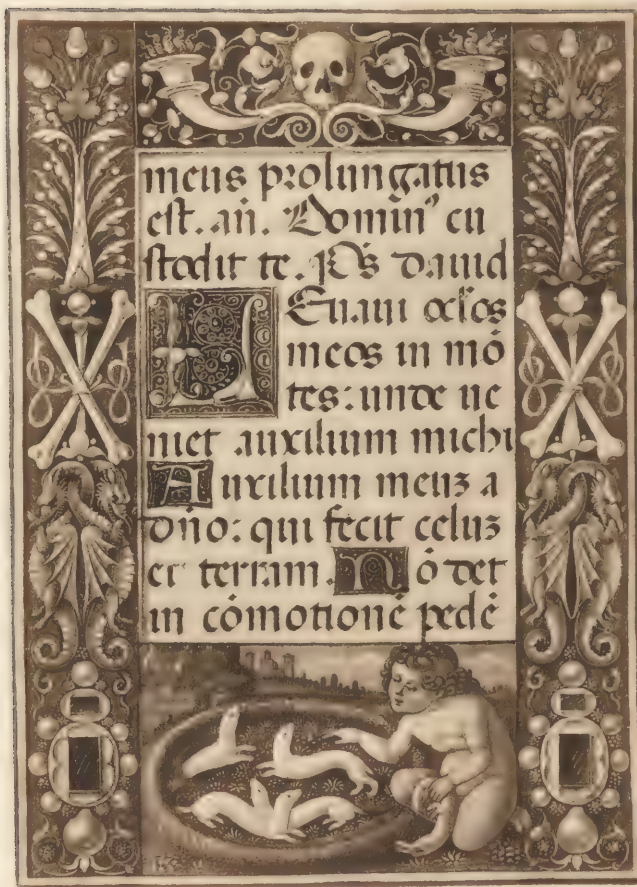 meus prolungatus
est. añ. Domin⁹ cu
stodit te. P̃s dauid
LEuaui oc̃los
meos in mõ
tes: unde ue
niet auxilium michi
Auxilium meuʒ a
dñõ: qui fecit celuʒ
et terram. Nõ det
in cõmotionẽ pedẽ